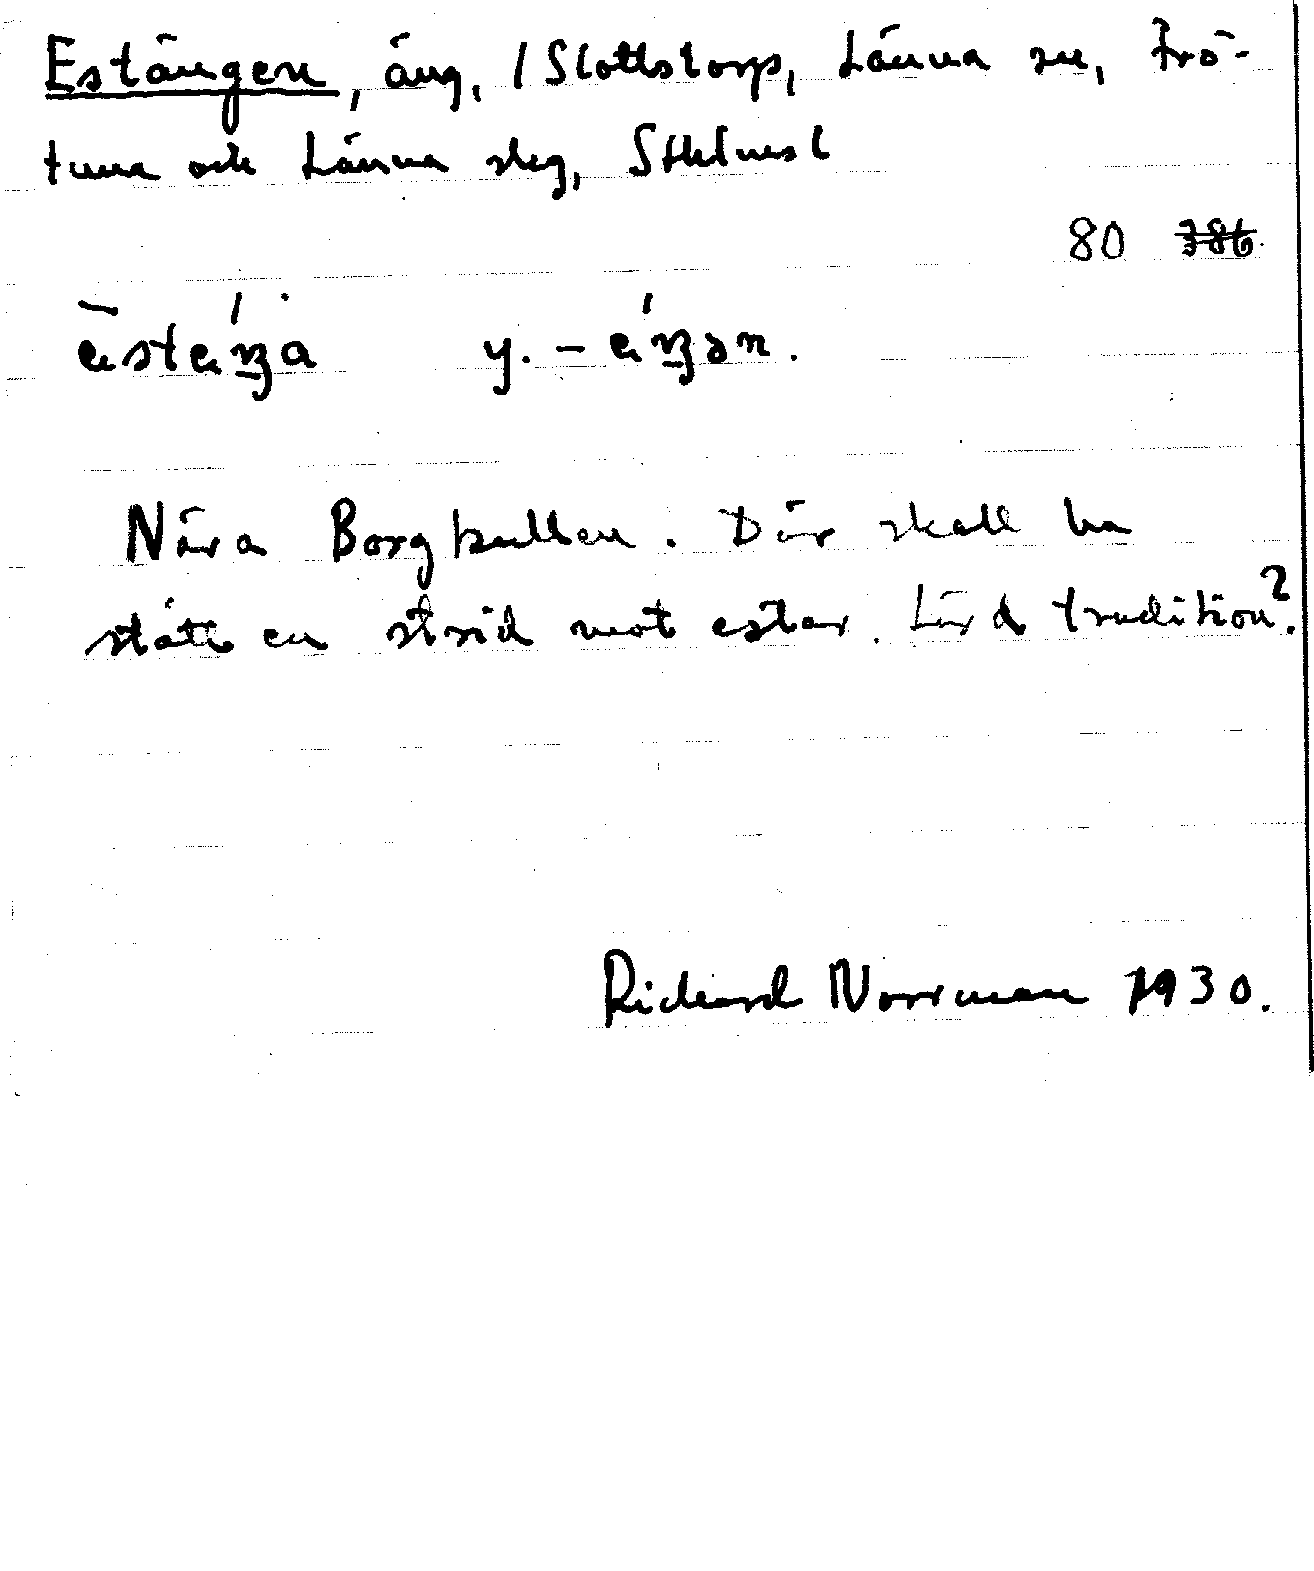 Estängen, äng, / Slottstorp, Länna sn, Frö-
tuna och Länna slg, Sthlms l
80 386
Nära Borgkullen. Där skall ha
stått en strid mot ester. Lärd tradition?
Richard Norrman 1930.